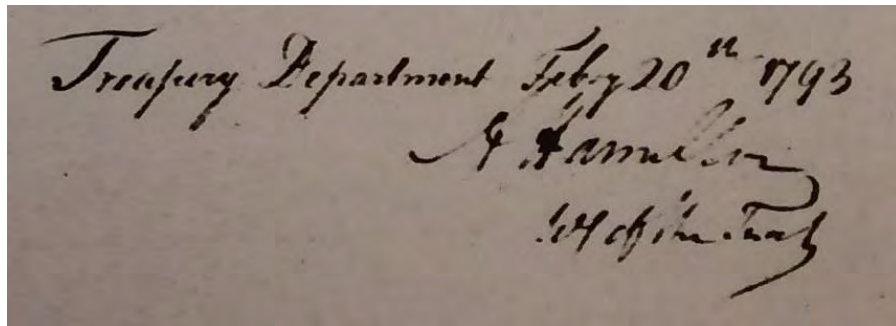 Treasury Department Feby 20th 1793
A Hamilton
of the Treasy